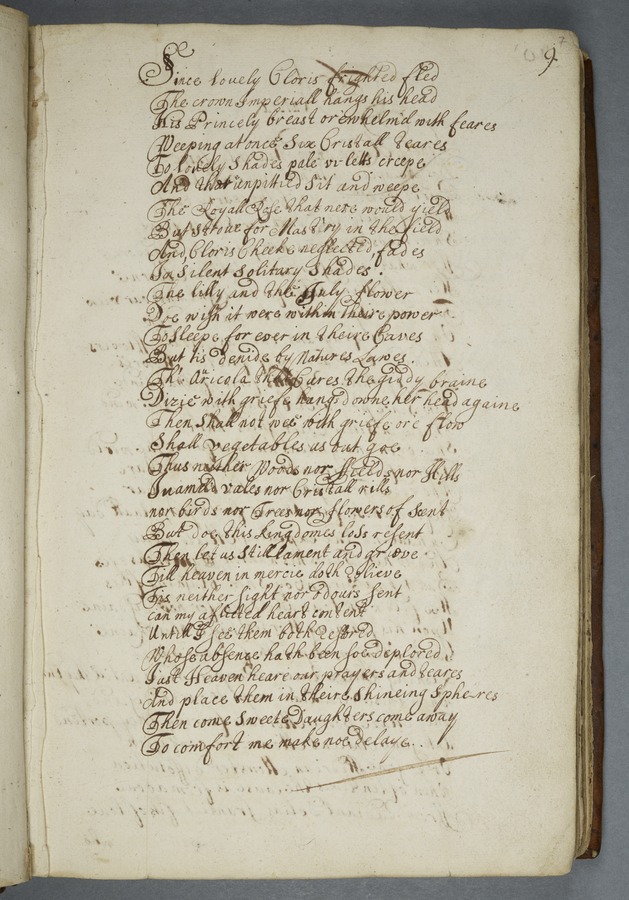 9
Since lovely Cloris frighted fled
The crown Imperiall hangs his head
His Princely breast orewhelm'd with feares
Weeping at once Six Cristall teares
To lovely Shades pale vi-letts creepe
And that unpittied Sit and weepe
The Royall Rose that nere would yield
But Strove for Mastry in the field
And Cloris Cheeke neglected fades
In Silent Solitary Shades.
The lilly and the July flower
Doe wish it were within theire power
To Sleepe for ever in theire Caves
But tis denide by Natures Lawes.
The Aricola that Cures the giddy braine
Dizie with griefe hangs downe her head againe
Then Shall not wee with griefe ore flow
Shall vegetables us out goe
Thus neither Woods nor ffields nor Hills
Inamild vales nor Cristall rills
nor birds nor Trees nor flowers of Scent
But doe this kingdomes loss resent
Then let us Still lament and grieve
Till heaven in mercie doth Relieve
Tis neither Sight nor odours Sent
can my aflicted heart content
Untill I See them both Restored
Whose absence hath been soe deplored
Just Heaven heare our prayers and teares
And place them in theire Shineing Spheares
Then come Sweete Daughters come away
To comfort me make noe delaye.